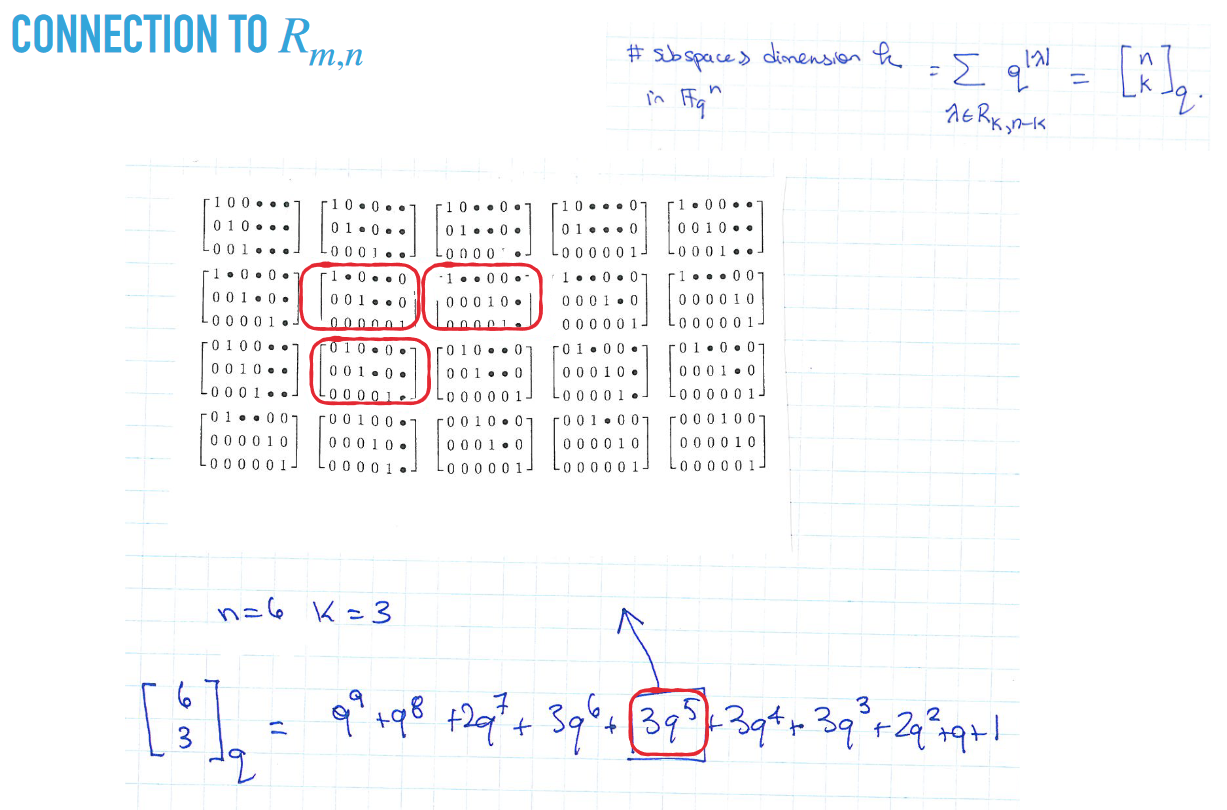 CONNECTION TO R_{m,n}
# subspaces dimension k = Σ q^{|λ|} = [n k]_q.
in 𝔽_q^n λ∈R_{k,n-k}
[1 0 0 • • •] [1 0 • 0 • •] [1 0 • • 0 •] [1 0 • • • 0] [1 • 0 0 • •]
[0 1 0 • • •] [0 1 • 0 • •] [0 1 • • 0 •] [0 1 • • • 0] [0 0 1 0 • •]
[0 0 1 • • •] [0 0 0 1 • •] [0 0 0 0 •] [0 0 0 0 0 1] [0 0 0 1 • •]
[1 • 0 • 0 •] [1 • 0 • • 0] [1 • • 0 0 •] [1 • • 0 • 0] [1 • • • 0 0]
[0 0 1 • 0 •] [0 0 1 • • 0] [0 0 0 1 0 •] [0 0 0 1 • 0] [0 0 0 0 1 0]
[0 0 0 0 1 •] [0 0 0 0 0 1] [0 0 0 0 1 •] [0 0 0 0 0 1] [0 0 0 0 0 1]
[0 1 0 0 • •] [0 1 0 • 0 •] [0 1 0 • • 0] [0 1 • 0 0 •] [0 1 • 0 • 0]
[0 0 1 0 • •] [0 0 1 • 0 •] [0 0 1 • • 0] [0 0 0 1 0 •] [0 0 0 1 • 0]
[0 0 0 1 • •] [0 0 0 0 1 •] [0 0 0 0 0 1] [0 0 0 0 1 •] [0 0 0 0 0 1]
[0 1 • • 0 0] [0 0 1 0 0 •] [0 0 1 0 • 0] [0 0 1 • 0 0] [0 0 0 1 0 0]
[0 0 0 0 1 0] [0 0 0 1 0 •] [0 0 0 1 • 0] [0 0 0 0 1 0] [0 0 0 0 1 0]
[0 0 0 0 0 1] [0 0 0 0 1 •] [0 0 0 0 0 1] [0 0 0 0 0 1] [0 0 0 0 0 1]
n=6 k=3
[6 3]_q = q^9 + q^8 + 2q^7 + 3q^6 + 3q^5 + 3q^4 + 3q^3 + 2q^2 + q + 1